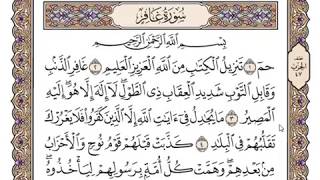 سُورَةُ غَافِرٍ
بِسْمِ اللَّهِ الرَّحْمَٰنِ الرَّحِيمِ
حمٓ ۝١ تَنزِيلُ الْكِتَابِ مِنَ اللَّهِ الْعَزِيزِ الْعَلِيمِ ۝٢ غَافِرِ الذَّنبِ
وَقَابِلِ التَّوْبِ شَدِيدِ الْعِقَابِ ذِي الطَّوْلِ لَا إِلَٰهَ إِلَّا هُوَ إِلَيْهِ
الْمَصِيرُ ۝٣ مَا يُجَادِلُ فِي آيَاتِ اللَّهِ إِلَّا الَّذِينَ كَفَرُوا فَلَا يَغْرُرْكَ
تَقَلُّبُهُمْ فِي الْبِلَادِ ۝٤ كَذَّبَتْ قَبْلَهُمْ قَوْمُ نُوحٍ وَالْأَحْزَابُ
مِن بَعْدِهِمْ وَهَمَّتْ كُلُّ أُمَّةٍ بِرَسُولِهِمْ لِيَأْخُذُوهُ